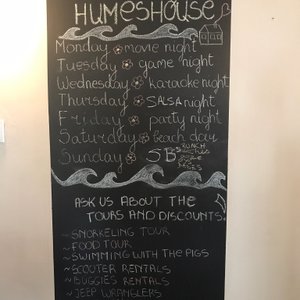 HUMESHOUSE
Monday movie night
Tuesday game night
Wednesday karaoke night
Thursday SALSA night
Friday party night
Saturday beach day
Sunday SB
ASK US ABOUT THE
TOURS AND DISCOUNTS!
~SNORKELING TOUR
~FOOD TOUR
~SWIMMING WITH THE PIGS
~SCOOTER RENTALS
~BUGGIES RENTALS
~JEEP WRANGLERS